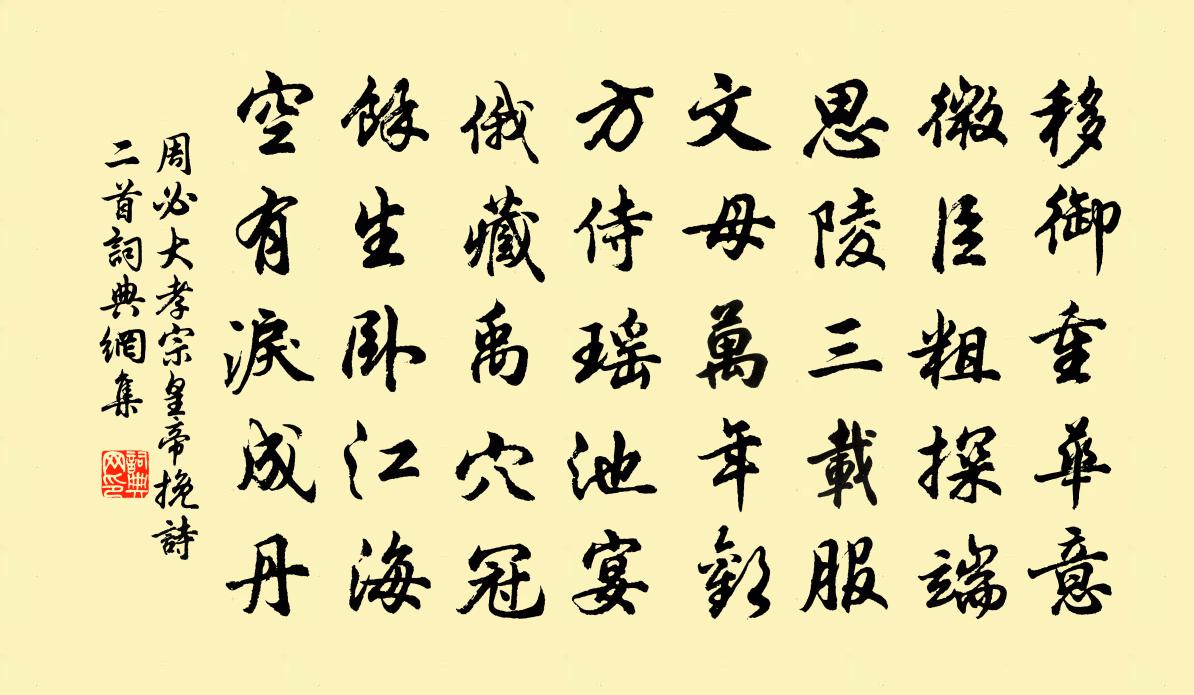 移御重華意
微臣粗探端
思陵三載服
文母萬年歡
方侍瑤池宴
俄藏禹穴冠
餘生卧江海
空有淚成丹
周必大孝宗皇帝挽詩
二首詞典網集
詞典
网印